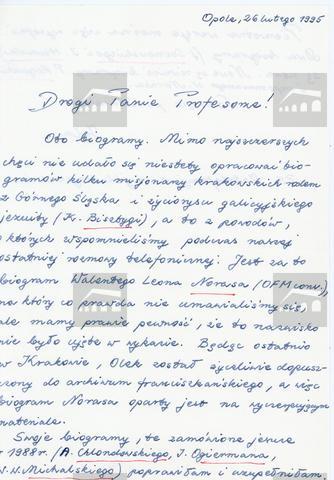 Opole, 26 lutego 1995
Drogi Panie Profesorze!
Oto biogramy. Mimo najszczerszych
chęci nie udało się niestety opracować bio-
gramów kilku misjonarzy krakowskich rodem
z Górnego Śląska i życiorysu galicyjskiego
jezuity (Fr. Biszbygi), a to z powodów,
o których wspomnieliśmy podczas naszej
ostatniej rozmowy telefonicznej. Jest za to
biogram Walentego Leona Norasa (OFM conv.),
na który co prawda nie umawialiśmy się,
ale mamy prawie pewność, że to nazwisko
nie było ujęte w wykazie. Będąc ostatnio
w Krakowie, Olek został życzliwie dopusz-
czony do archiwum franciszkańskiego, a więc
biogram Norasa oparty jest na wyczerpującym
materiale.
Swoje biogramy, te zamówione jeszcze
1988r. (A. Chlondowskiego, J. Ogiermana,
Michalskiego) poprawiłam i uzupełniłam.